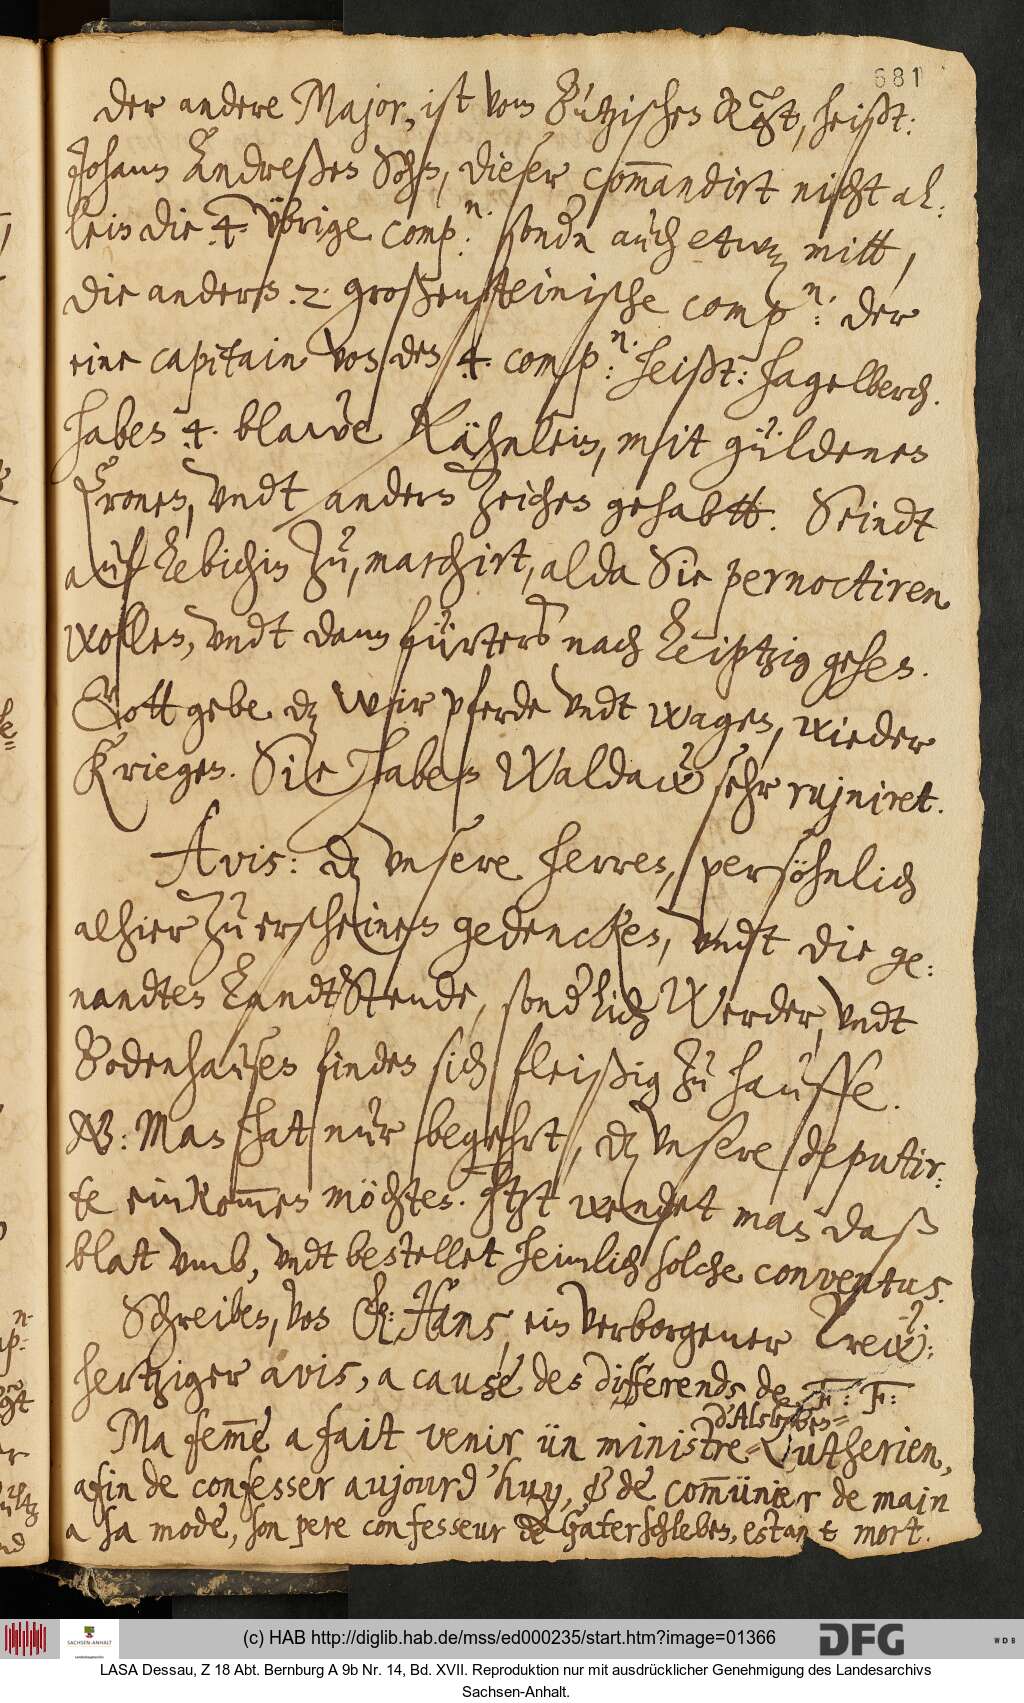 681
Der andere Major, ist vom Bützischen Rgt, heißt:
Johann Andreßen Sohn, dieser com̄andirt nicht al:
lein die .4. übrige comp.n: sondn auch etwz mitt,
die andern .2. großensteinische compn: der
eine capitain von den .4. compn: heißt: Hagelberch.
haben .4. blawe Fähnlein, mit güldenen
Cronen, vndt andern Zeichen gehabtt. Seindt
auf Lebichin zu, marchirt, alda Sie pernoctiren
wollen, vndt dann fürters nach Leiptzig gehen.
Gott gebe dz wir pferde vndt wagen, wieder
Kriegen. Sie haben Waldaw sehr rujniret.
Avis: dz vnsere herren, persöhnlich
alhier zu erscheinen gedencken, vndt die ge:
nandten LandtStende, sonderlich Werder, vndt
Bodenhausen finden sich fleißig zu hauffe.
NB: Man hat nur begehrt, dz vnsere deputir:
te einkom̄en möchten. Itzt wendet man daß
blat vmb, vndt bestellet heimlich solche conventus.
Schreiben, von hans, ein verborgener Trew:
hertziger avis, a cause des differends de F: F:
d'Alsleben
Ma fem̄e a fait venir ün ministre Lutherien,
afin de confesser aujourd'huy, & de com̄ünier demain
a sa mode, son pere confesseur de Haterschleben, estant mort.
(c) HAB http://diglib.hab.de/mss/ed000235/start.htm?image=01366
DFG
WDB
SACHSEN-ANHALT
LASA Dessau, Z 18 Abt. Bernburg A 9b Nr. 14, Bd. XVII. Reproduktion nur mit ausdrücklicher Genehmigung des Landesarchivs
Sachsen-Anhalt.